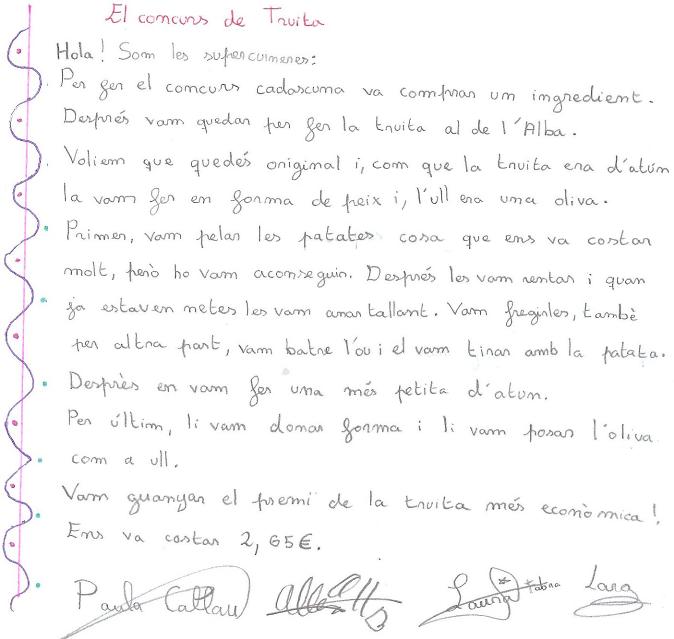 El concurs de Truita
Hola! Som les supercuineres:
Per fer el concurs cadascuna va comprar un ingredient.
Després vam quedar per fer la truita al de l'Alba.
Voliem que quedés original i, com que la truita era d'atún
la vam fer en forma de peix i, l'ull era una oliva.
Primer, vam pelar les patates cosa que ens va costar
molt, però ho vam aconseguir. Després les vam rentar i quan
ja estaven netes les vam anar tallant. Vam fregirles, també
per altra part, vam batre l'ou i el vam tirar amb la patata.
Desprès en vam fer una més petita d'atun.
Per últim, li vam donar forma i li vam posar l'oliva
com a ull.
Vam guanyar el premi de la truita més econòmica!
Ens va costar 2,65€.
Paula Laura Lara